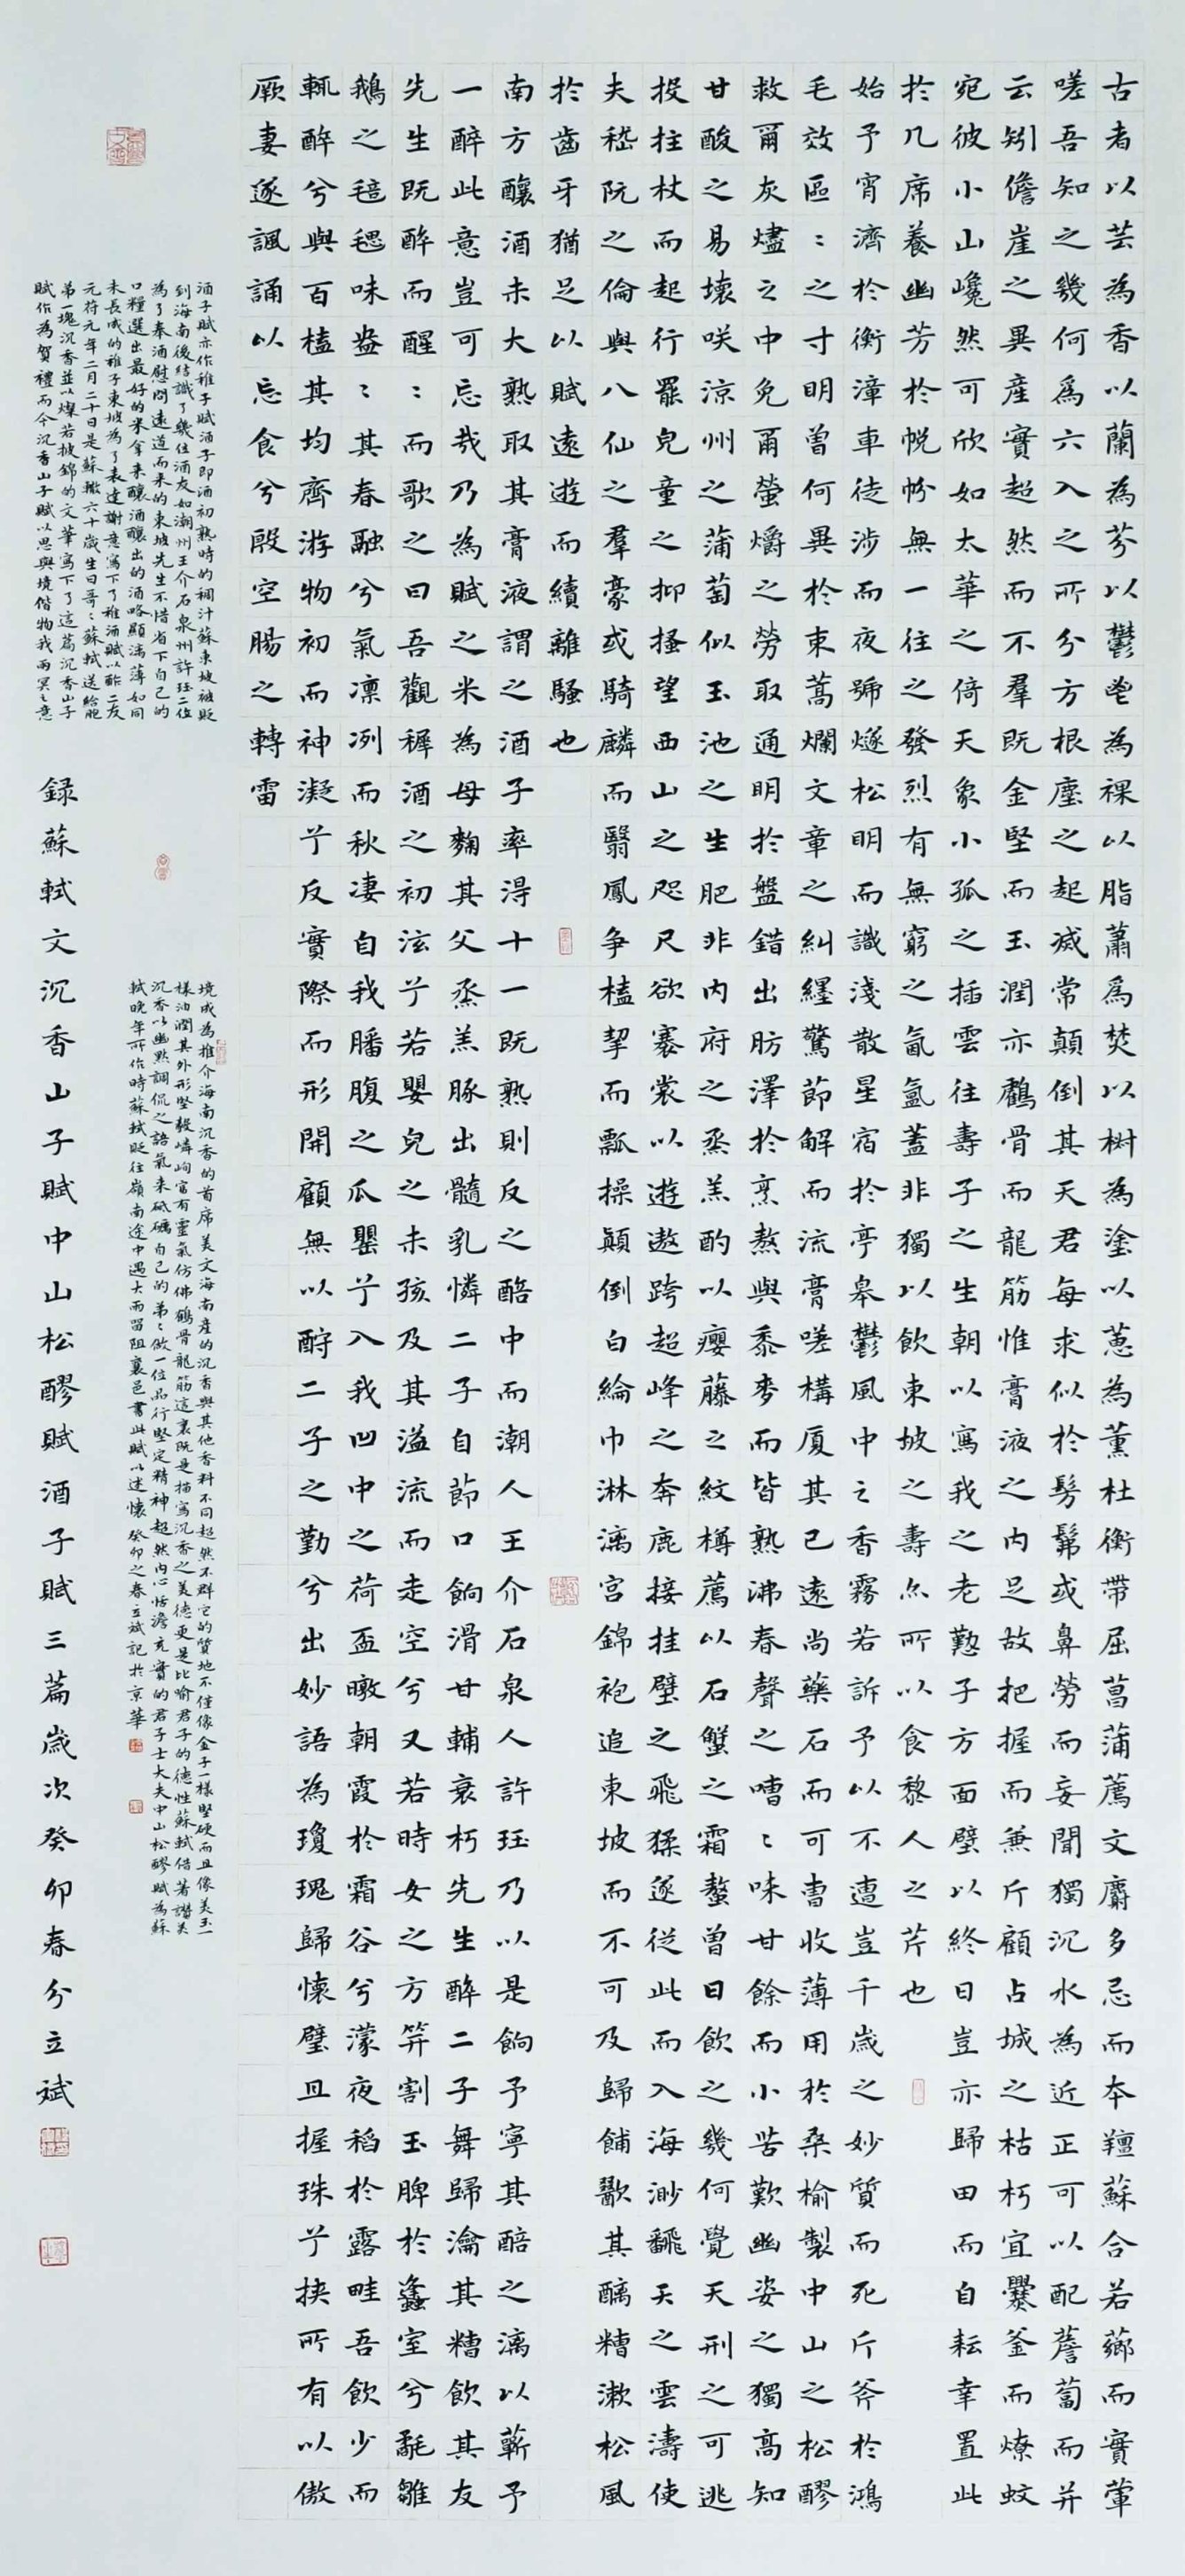 古者以芸為香以蘭為芬以鬱鬯為祼以脂蕭為焚以椒為塗以蕙為薰杜衡帶屈菖蒲薦文麝多忌而本羶蘇合若薌而實葷
嗟吾知之幾何為六入之所分方根塵之起滅常顛倒其天君每求似於髣髴或鼻勞而妄聞獨沉水為近正可以配薝蔔而并
云矧儋崖之異產實超然而不羣既金堅而玉潤亦鶴骨而龍筋惟膏液之內足故把握而兼斤顧占城之枯朽宜爨釜而燎蚊
宛彼小山巉然可欣如太華之倚天象小孤之插雲往壽子之生朝以寫我之老懃子方面壁以終日豈亦歸田而自耘幸置此
於几席養幽芳於帨帉無一往之發烈有無窮之氤氳蓋非獨以飲東坡之壽亦所以食黎人之芹也
始予宵濟於衡漳車徒涉而夜號燧松明而識淺散星宿於亭皋鬱風中之香霧若訴予以不遭豈千歲之妙質而死斤斧於鴻
毛效區〻之寸明曾何異於束蒿爛文章之糾纆驚節解而流膏嗟構厦其已遠尚藥石而可曹收薄用於桑榆製中山之松醪
救爾灰燼之中免爾螢爝之勞取通明於盤錯出肪澤於烹熬與黍麥而皆熟沸春聲之嘈〻味甘餘而小苦歎幽姿之獨高知
甘酸之易壞咲涼州之蒲萄似玉池之生肥非內府之烝羔酌以癭藤之紋樽薦以石蟹之霜螯曾日飲之幾何覺天刑之可逃
投拄杖而起行罷兒童之抑搔望西山之咫尺欲褰裳以遊遨跨超峰之奔鹿接挂壁之飛猱遂從此而入海渺飜天之雲濤使
夫嵇阮之倫與八仙之羣豪或騎麟而翳鳳争榼挈而瓢操顛倒白綸巾淋漓宮錦袍追東坡而不可及歸餔歠其醨糟漱松風
於齒牙猶足以賦遠遊而續離騷也
南方釀酒未大熟取其膏液謂之酒子率得十一既熟則反之醅中而潮人王介石泉人許珏乃以是餉予寧其醅之漓以蘄予
一醉此意豈可忘哉乃為賦之米為母麴其父烝羔豚出髓乳憐二子自節口餉滑甘輔衰朽先生醉二子舞歸瀹其糟飲其友
先生既醉而醒〻而歌之曰吾觀稺酒之初泫兮若嬰兒之未孩及其溢流而走空兮又若時女之方笄割玉脾於蠭室兮氄雛
鵝之毰毸味盎〻其春融兮氣凛冽而秋凄自我膰腹之瓜罌兮入我凹中之荷盃暾朝霞於霜谷兮濛夜稻於露畦吾飲少而
輒醉兮與百榼其均齊游物初而神凝兮反實際而形開顧無以酧二子之勤兮出妙語為瓊瑰歸懷璧且握珠兮挾所有以傲
厥妻遂諷誦以忘食兮殷空腸之轉雷
酒子賦亦作稚子賦酒子即酒初熟時的稠汁蘇東坡被貶
到海南後結識了幾位酒友如潮州王介石泉州許珏二位
為了奉酒慰問遠道而来的東坡先生不惜省下自己的
口糧選出最好的米拿来釀酒釀出的酒略顯滿薄如同
未長成的稚子東坡為了表達謝意寫下了稚酒賦以酢二友
元符元年二月二十日是蘇轍六十歲生日哥〻蘇軾送給胞
弟一塊沉香並以燦若披錦的文華寫下了這篇沉香山子
賦作為賀禮而今沉香山子賦以思與境偕物我兩冥之意
境成為推介海南沉香的首席美文海南産的沉香與其他香料不同超然不群它的質地不僅像金子一樣堅硬而且像美玉一
樣油潤其外形堅毅嶙峋富有靈氣仿佛鶴骨龍筋這裏既是描寫沉香之美德更是比喻君子的德性蘇軾借著讚美
沉香以幽默調侃之語氣来砥礪自己的弟〻做一位品行堅定精神超然內心恬澹充實的君子士大夫中山松醪賦為蘇
軾晚年所作時蘇軾貶往嶺南途中遇大雨留阻襄邑書此賦以述懷癸卯之春立斌記於京華
録蘇軾文沉香山子賦中山松醪賦酒子賦三篇歲次癸卯春分立斌